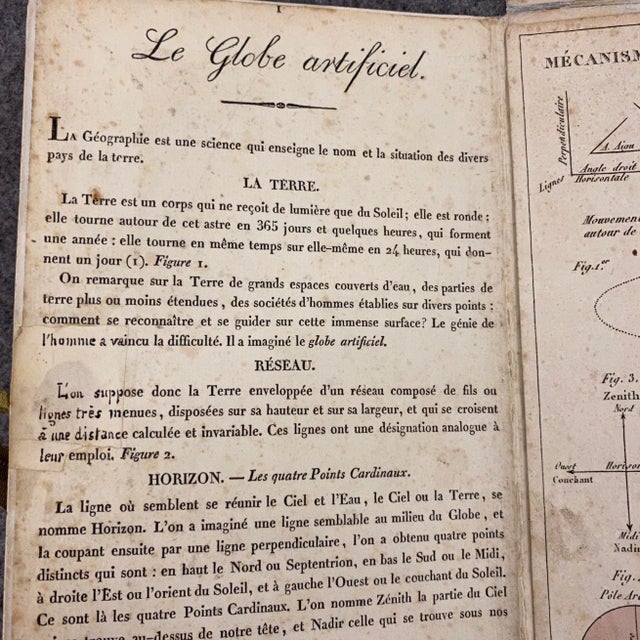 1
Le Globe artificiel.
LA Géographie est une science qui enseigne le nom et la situation des divers
pays de la terre.
LA TERRE.
La Terre est un corps qui ne reçoit de lumière que du Soleil; elle est ronde;
elle tourne autour de cet astre en 365 jours et quelques heures, qui forment
une année : elle tourne en même temps sur elle-même en 24 heures, qui don-
nent un jour (1). Figure 1.
On remarque sur la Terre de grands espaces couverts d'eau, des parties de
terre plus ou moins étendues, des sociétés d'hommes établies sur divers points :
comment se reconnaître et se guider sur cette immense surface? Le génie de
l'homme a vaincu la difficulté. Il a imaginé le globe artificiel.
RÉSEAU.
L'on suppose donc la Terre enveloppée d'un réseau composé de fils ou
lignes très menues, disposées sur sa hauteur et sur sa largeur, et qui se croisent
à une distance calculée et invariable. Ces lignes ont une désignation analogue à
leur emploi. Figure 2.
HORIZON. — Les quatre Points Cardinaux.
La ligne où semblent se réunir le Ciel et l'Eau, le Ciel ou la Terre, se
nomme Horizon. L'on a imaginé une ligne semblable au milieu du Globe, et
la coupant ensuite par une ligne perpendiculaire, l'on a obtenu quatre points
distincts qui sont : en haut le Nord ou Septentrion, en bas le Sud ou le Midi,
à droite l'Est ou l'orient du Soleil, et à gauche l'Ouest ou le couchant du Soleil.
Ce sont là les quatre Points Cardinaux. L'on nomme Zénith la partie du Ciel
au-dessus de notre tête, et Nadir celle qui se trouve sous nos
MÉCANISM
Perpendiculaire
A. Aigu
Angle droit
Lignes
Horisontale
Mouvemen
autour de
Fig. 1.er
Fig. 3.
Zenith
Nord
Ouest
Horiso
Couchant
Midi
Nadir
Fig.
Pôle Ar